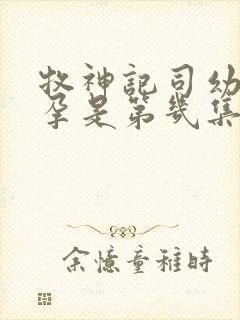 牧神記司幼
孕是第幾集
余憶童稚時